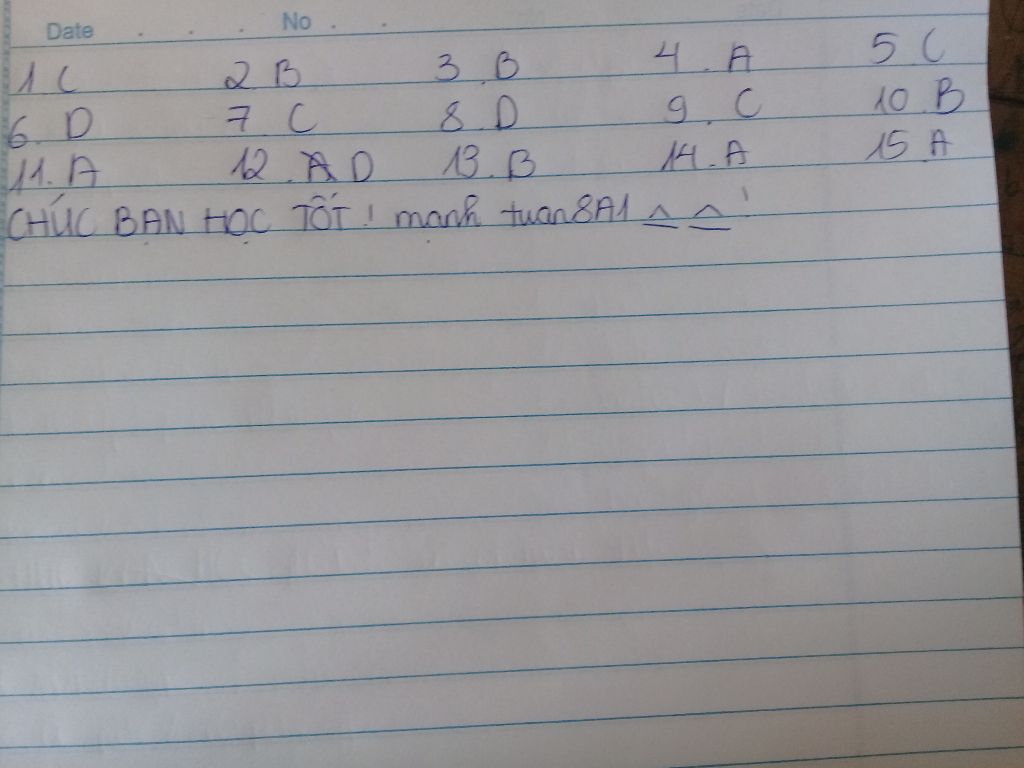 Date . . . No . . .
1 C 2 B 3. B 4. A 5 C
6. D 7. C 8. D 9. C 10. B
11. A 12. A D 13. B 14. A 15 A
CHÚC BẠN HỌC TỐT! mạnh tuan 8A1 ^_^_'